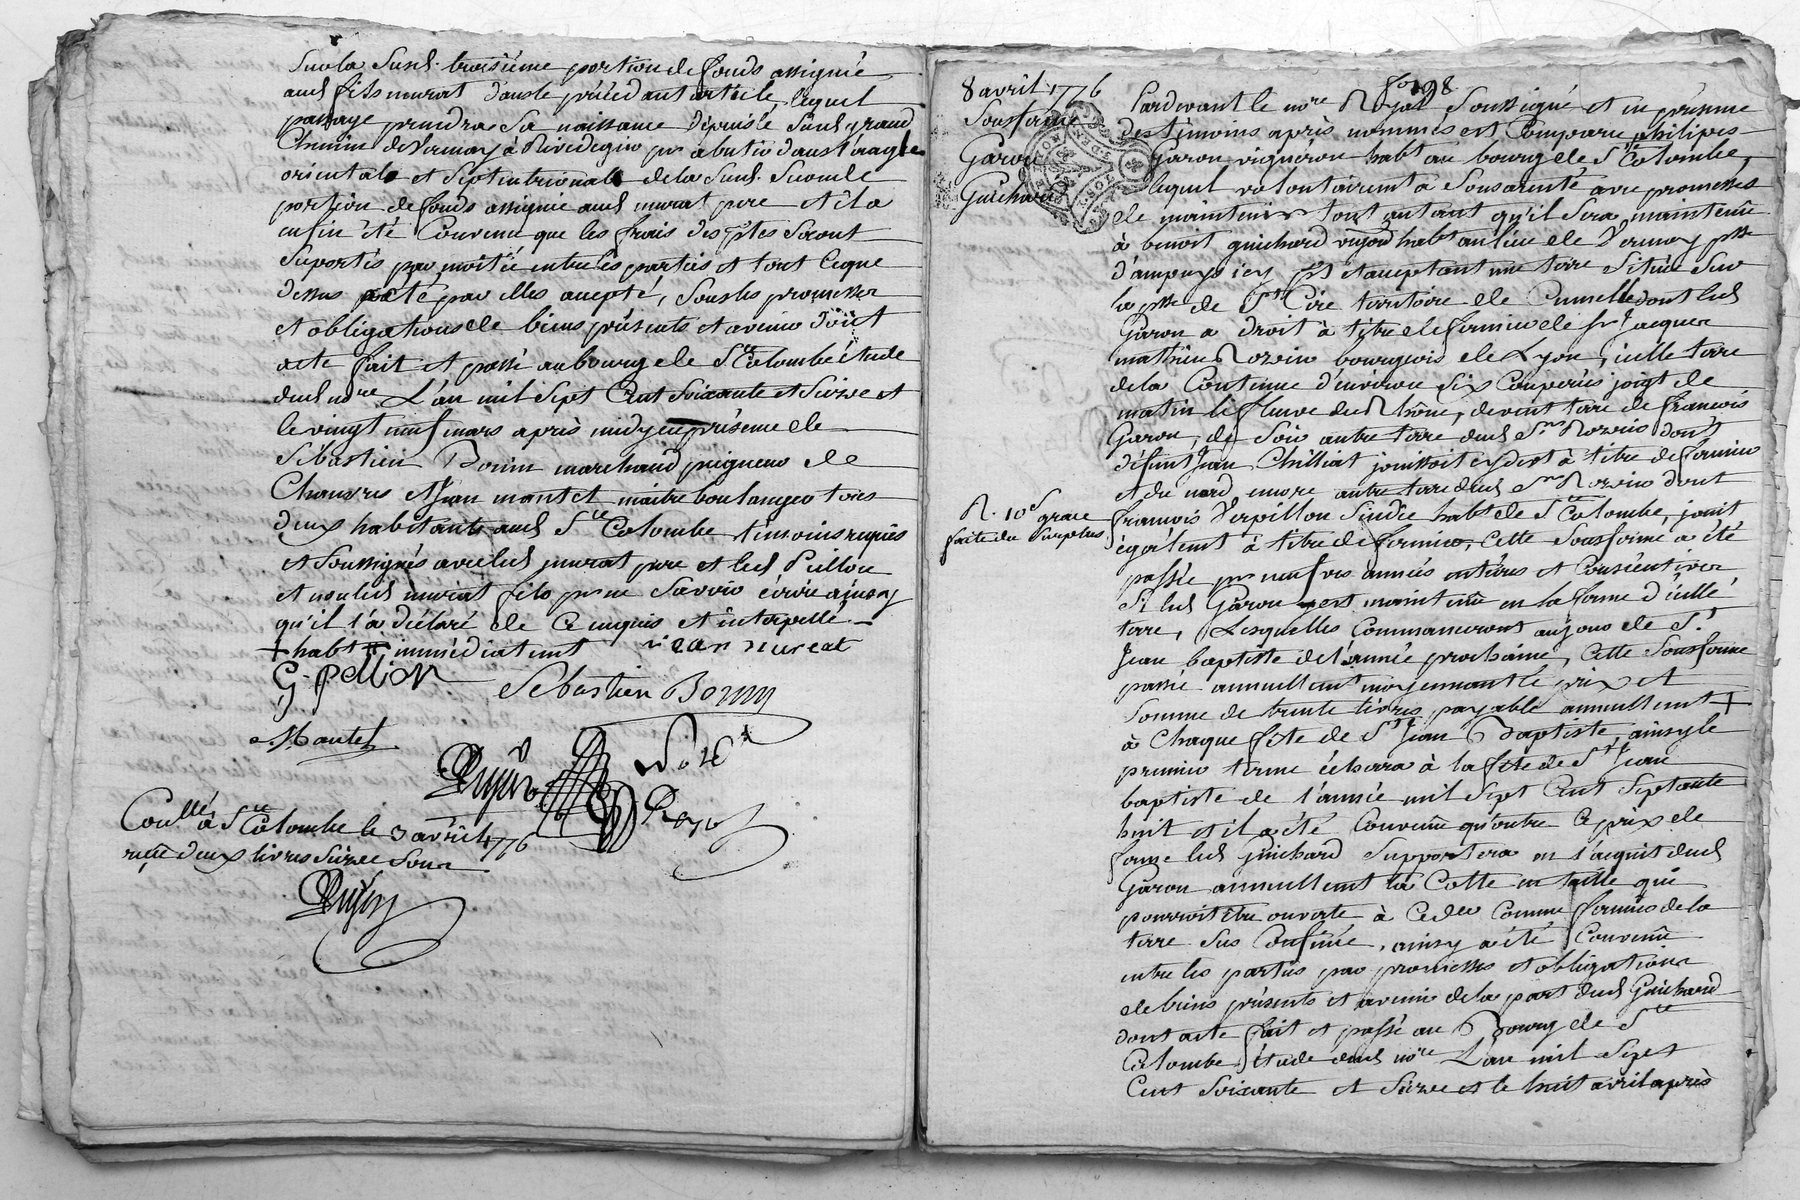 Sur la Susd. troisième portion de fonds assignée
aud fils murat dans le précédant article, lequel
passage prendra Sa naissance depuis le Susd. grand
Chemin de Vernay à Rivedegier pr abutir dans l'angle
orientale et Septentrionale de la Susd. Seconde
portion de fonds assignée aud murat pere et il a
enfin été Convenu que les frais des ptes Seront
Suportés par moitié entre les parties et tout Ceque
dessus acté par elles accepté, Sous les promesses
et obligations de biens présents et avenir dont
acte fait et passé au bourg de Ste Colombe étude
dud nore L'an mil Sept Cent Soixante et Seize et
le vingt neuf mars après midy en présence de
Sébastien Bonin marchand peigneur de
Chanvres et Jean mantel maitre boulanger tous
deux habitants aud Ste Colombe témoins requis
et Soussignés avec led murat pere et led Pellion
et non led murat fils pr ne Savoir écrire ainsy
qu'il l'a déclaré de Ce enquis et interpellé
+ habt ‡ immédiatement jean mureat
G. pellion
Sebastien Bonin
Mantel
Coullé à Ste Colombe le 3 avril 1776
reçu deux livres Seize Sous
8 avril 1776
Sousferme
Garon
Guichard
R. 10s grace
faite du Surplus
fo 198
Pardevant le nore Royal Soussigné et en présence
des témoins après nommés est Comparu philipes
Garon vigneron habt au bourg de Ste Colombe,
lequel volontairemt a Sousarenté avec promesses
de maintenir tout autant qu'il Sera maintenu
à benoit guichard vigneron habt au lieu de Vernay psse
d'ampuys icy pst et acceptant une terre Située Sur
la psse de St Cire territoire de Cumelle dont led
Garon a droit à titre de fermier de Sr Jacques
mathieu Rozein bourgeois de Lyon, icelle terre
de la Contenue d'environ Six Couperées joigt de
matin le fleuve du Rhône, de vent terre de francois
Garon, de Soir autre terre dud Sr Rozein dont
défunt Jean Chilliat jouissoit cydevt à titre de fermier
et du nord encore autre terre dud Sr Rozein dont
francois Verpillon Sindic habt de Ste Colombe, jouit
égalemt à titre de fermier, Cette Sousferme a été
passée pr neuf vrs années entieres et Consécutives
Si led Garon y est maintenu en la ferme d'icelle
terre, Lesquelles Commanceront au jour de St
Jean baptiste de l'année prochaine, Cette Sousferme
passée annuellemt moyennant le prix et
Somme de trente livres payable annuellemt +
à Chaque fête de St Jean Baptiste, ainsy le
premier terme écherra à la fête de St Jean
baptiste de l'année mil Sept Cent Septante
huit et il a été Convenu qu'outre Ce prix de
ferme led guichard Supportera en l'acquit dud
Garon annuellemt la Cotte en taille qui
pourroit être ouverte à Cedr Comme fermier de la
terre Sus Confinée, ainsy a été Convenu
entre les parties par promesses et obligations
de biens présents et avenir de la part dud Guichard
dont acte fait et passé au Bourg de Ste
Colombe étude dud nore L'an mil Sept
Cent Soixante et Seize et le huit avril après